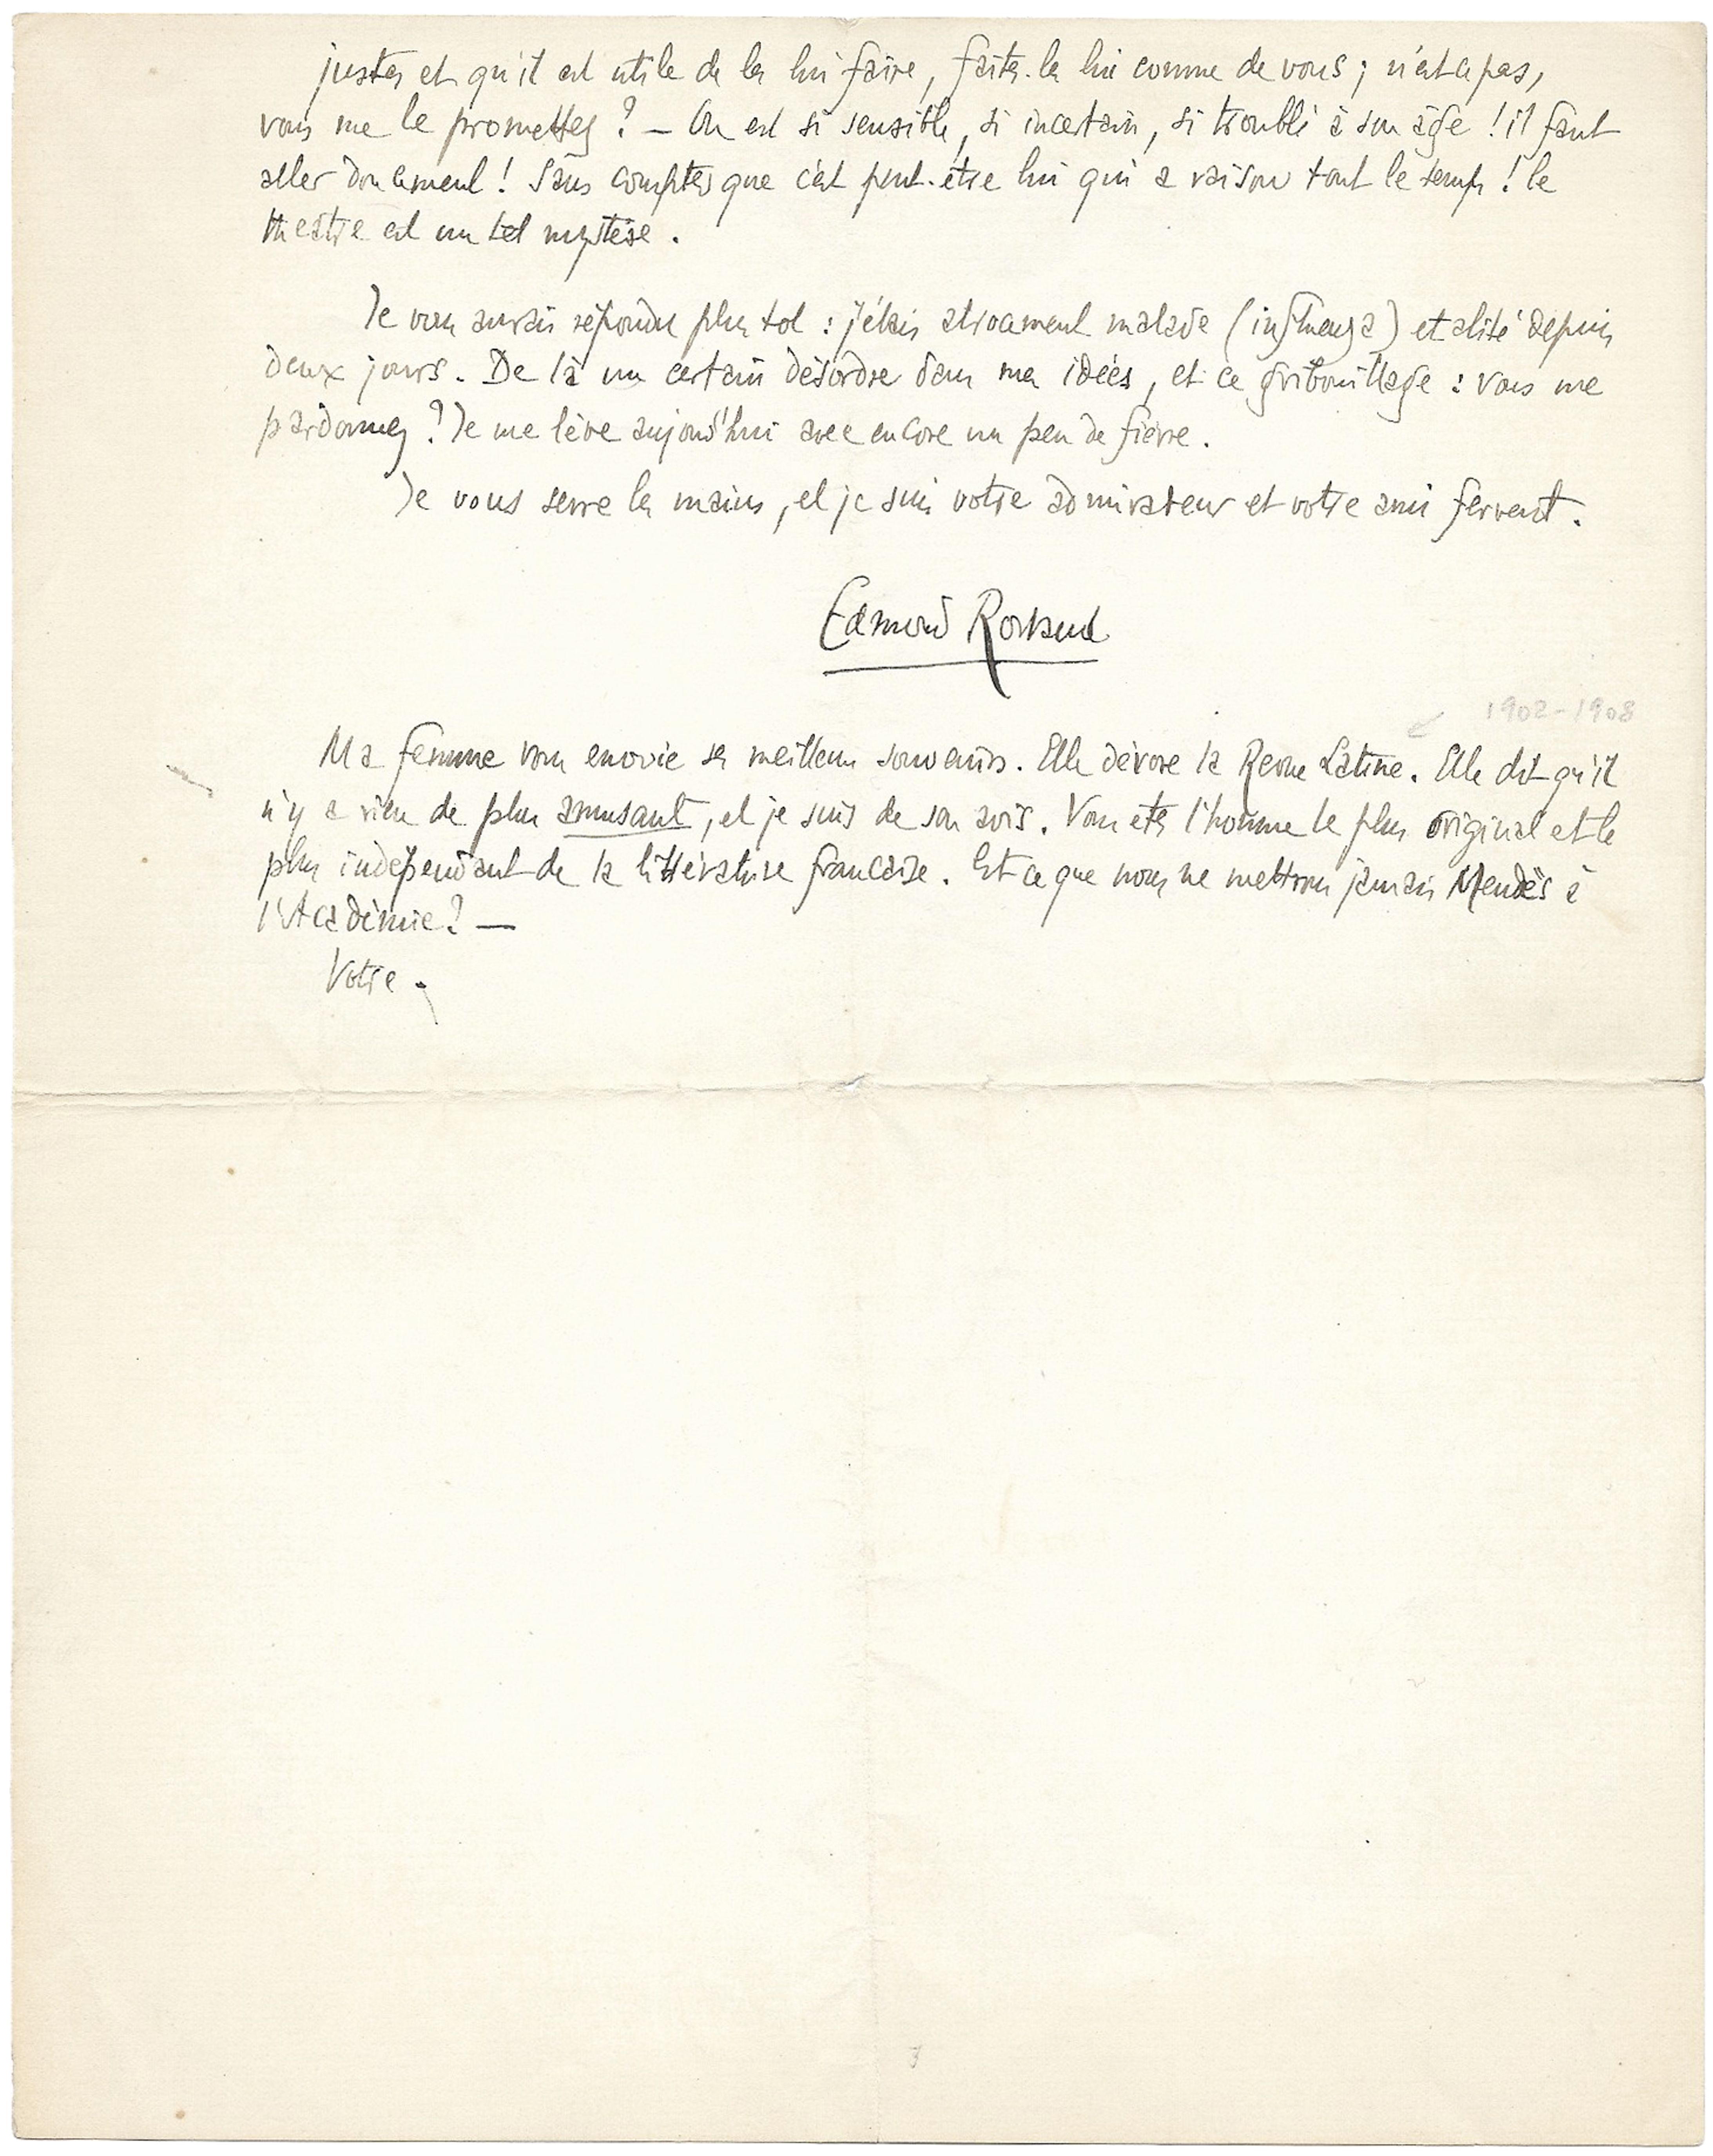 justes et qu'il est utile de les lui faire, faites-les lui comme de vous ; n'est ce pas,
vous me le promettez ? — On est si sensible, si incertain, si troublé à son âge ! il faut
aller doucement ! Sans compter que c'est peut-être lui qui a raison tout le temps ! le
théâtre est un tel mystère .
Je vous aurais répondu plus tot : j'étais atrocement malade (influenza) et alité depuis
deux jours . De là un certain désordre dans mes idées, et ce gribouillage : vous me
pardonnez ? Je me lève aujourd'hui avec encore un peu de fièvre .
Je vous serre les mains, et je suis votre admirateur et votre ami fervent .
Edmond Rostand
1902-1908
Ma femme vous envoie ses meilleurs souvenirs . Elle dévore la Revue Latine . Elle dit qu'il
n'y a rien de plus amusant, et je suis de son avis . Vous etes l'homme le plus original et le
plus indépendant de la littérature francaise . Est ce que nous ne mettrons jamais Mendès à
l'Académie ? —
Votre .
3